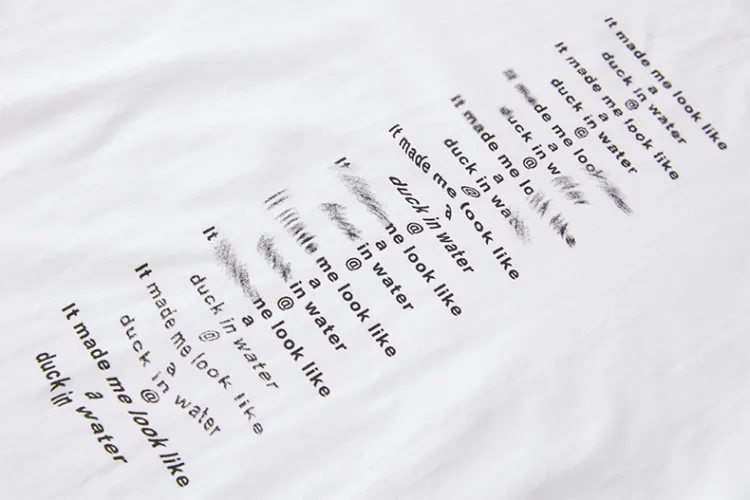 It made me look like
a
duck in water
@
It made me look like
a
duck in water
@
me
a
duck in
@
It made me
a
duck in
@
It made me look like
a
duck in water
@
me look like
a
in water
@
me look like
a
in water
@
It me look like
a
duck in water
@
It made me look like
a
duck in water
@
It made me look like
a
duck in water